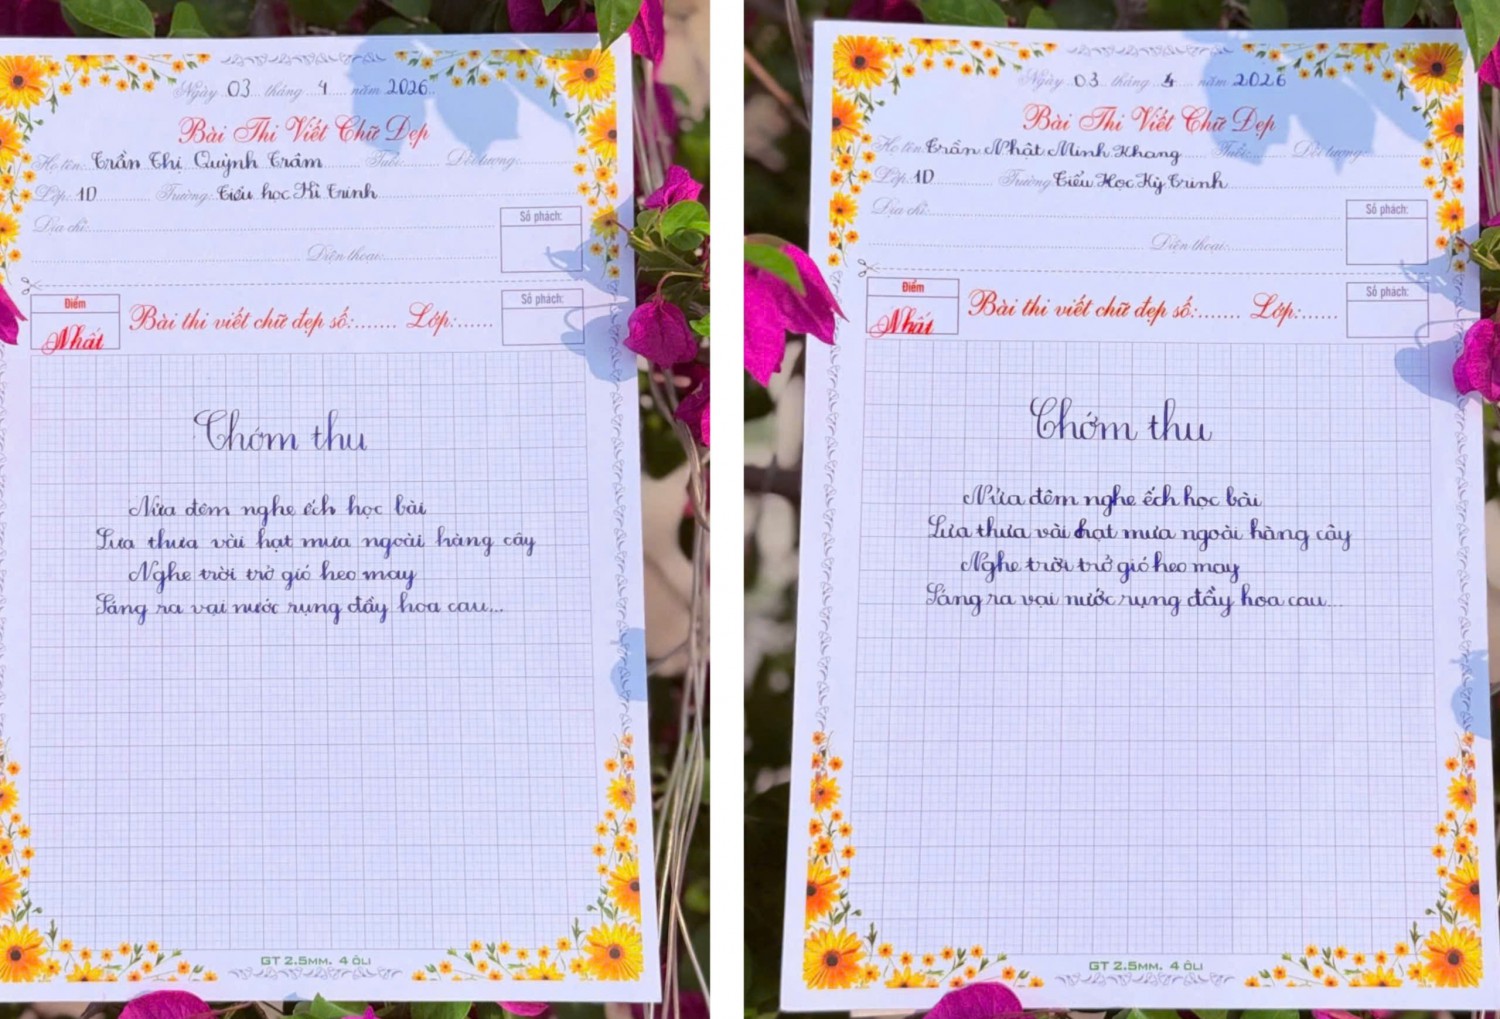 Ngày 03 tháng 4 năm 2026
Bài Thi Viết Chữ Đẹp
Họ tên: Trần Thị Quỳnh Trâm Tuổi: Đối tượng:
Lớp: 1D Trường: Tiểu học Kì Trinh
Địa chỉ:
Số phách:
Điện thoại:
Điểm
Nhất
Bài thi viết chữ đẹp số: Lớp:
Số phách:
Chớm thu
Nửa đêm nghe ếch học bài
Lưa thưa vài hạt mưa ngoài hàng cây
Nghe trời trở gió heo may
Sáng ra vại nước rụng đầy hoa cau...
GT 2.5MM. 4 ÔLI
Ngày 03 tháng 4 năm 2026
Bài Thi Viết Chữ Đẹp
Họ tên: Trần Nhật Minh Khang Tuổi: Đối tượng:
Lớp: 1D Trường: Tiểu Học Kỳ Trinh
Địa chỉ:
Số phách:
Điện thoại:
Điểm
Nhất
Bài thi viết chữ đẹp số: Lớp:
Số phách:
Chớm thu
Nửa đêm nghe ếch học bài
Lưa thưa vài hạt mưa ngoài hàng cây
Nghe trời trở gió heo may
Sáng ra vại nước rụng đầy hoa cau...
GT 2.5MM. 4 ÔLI